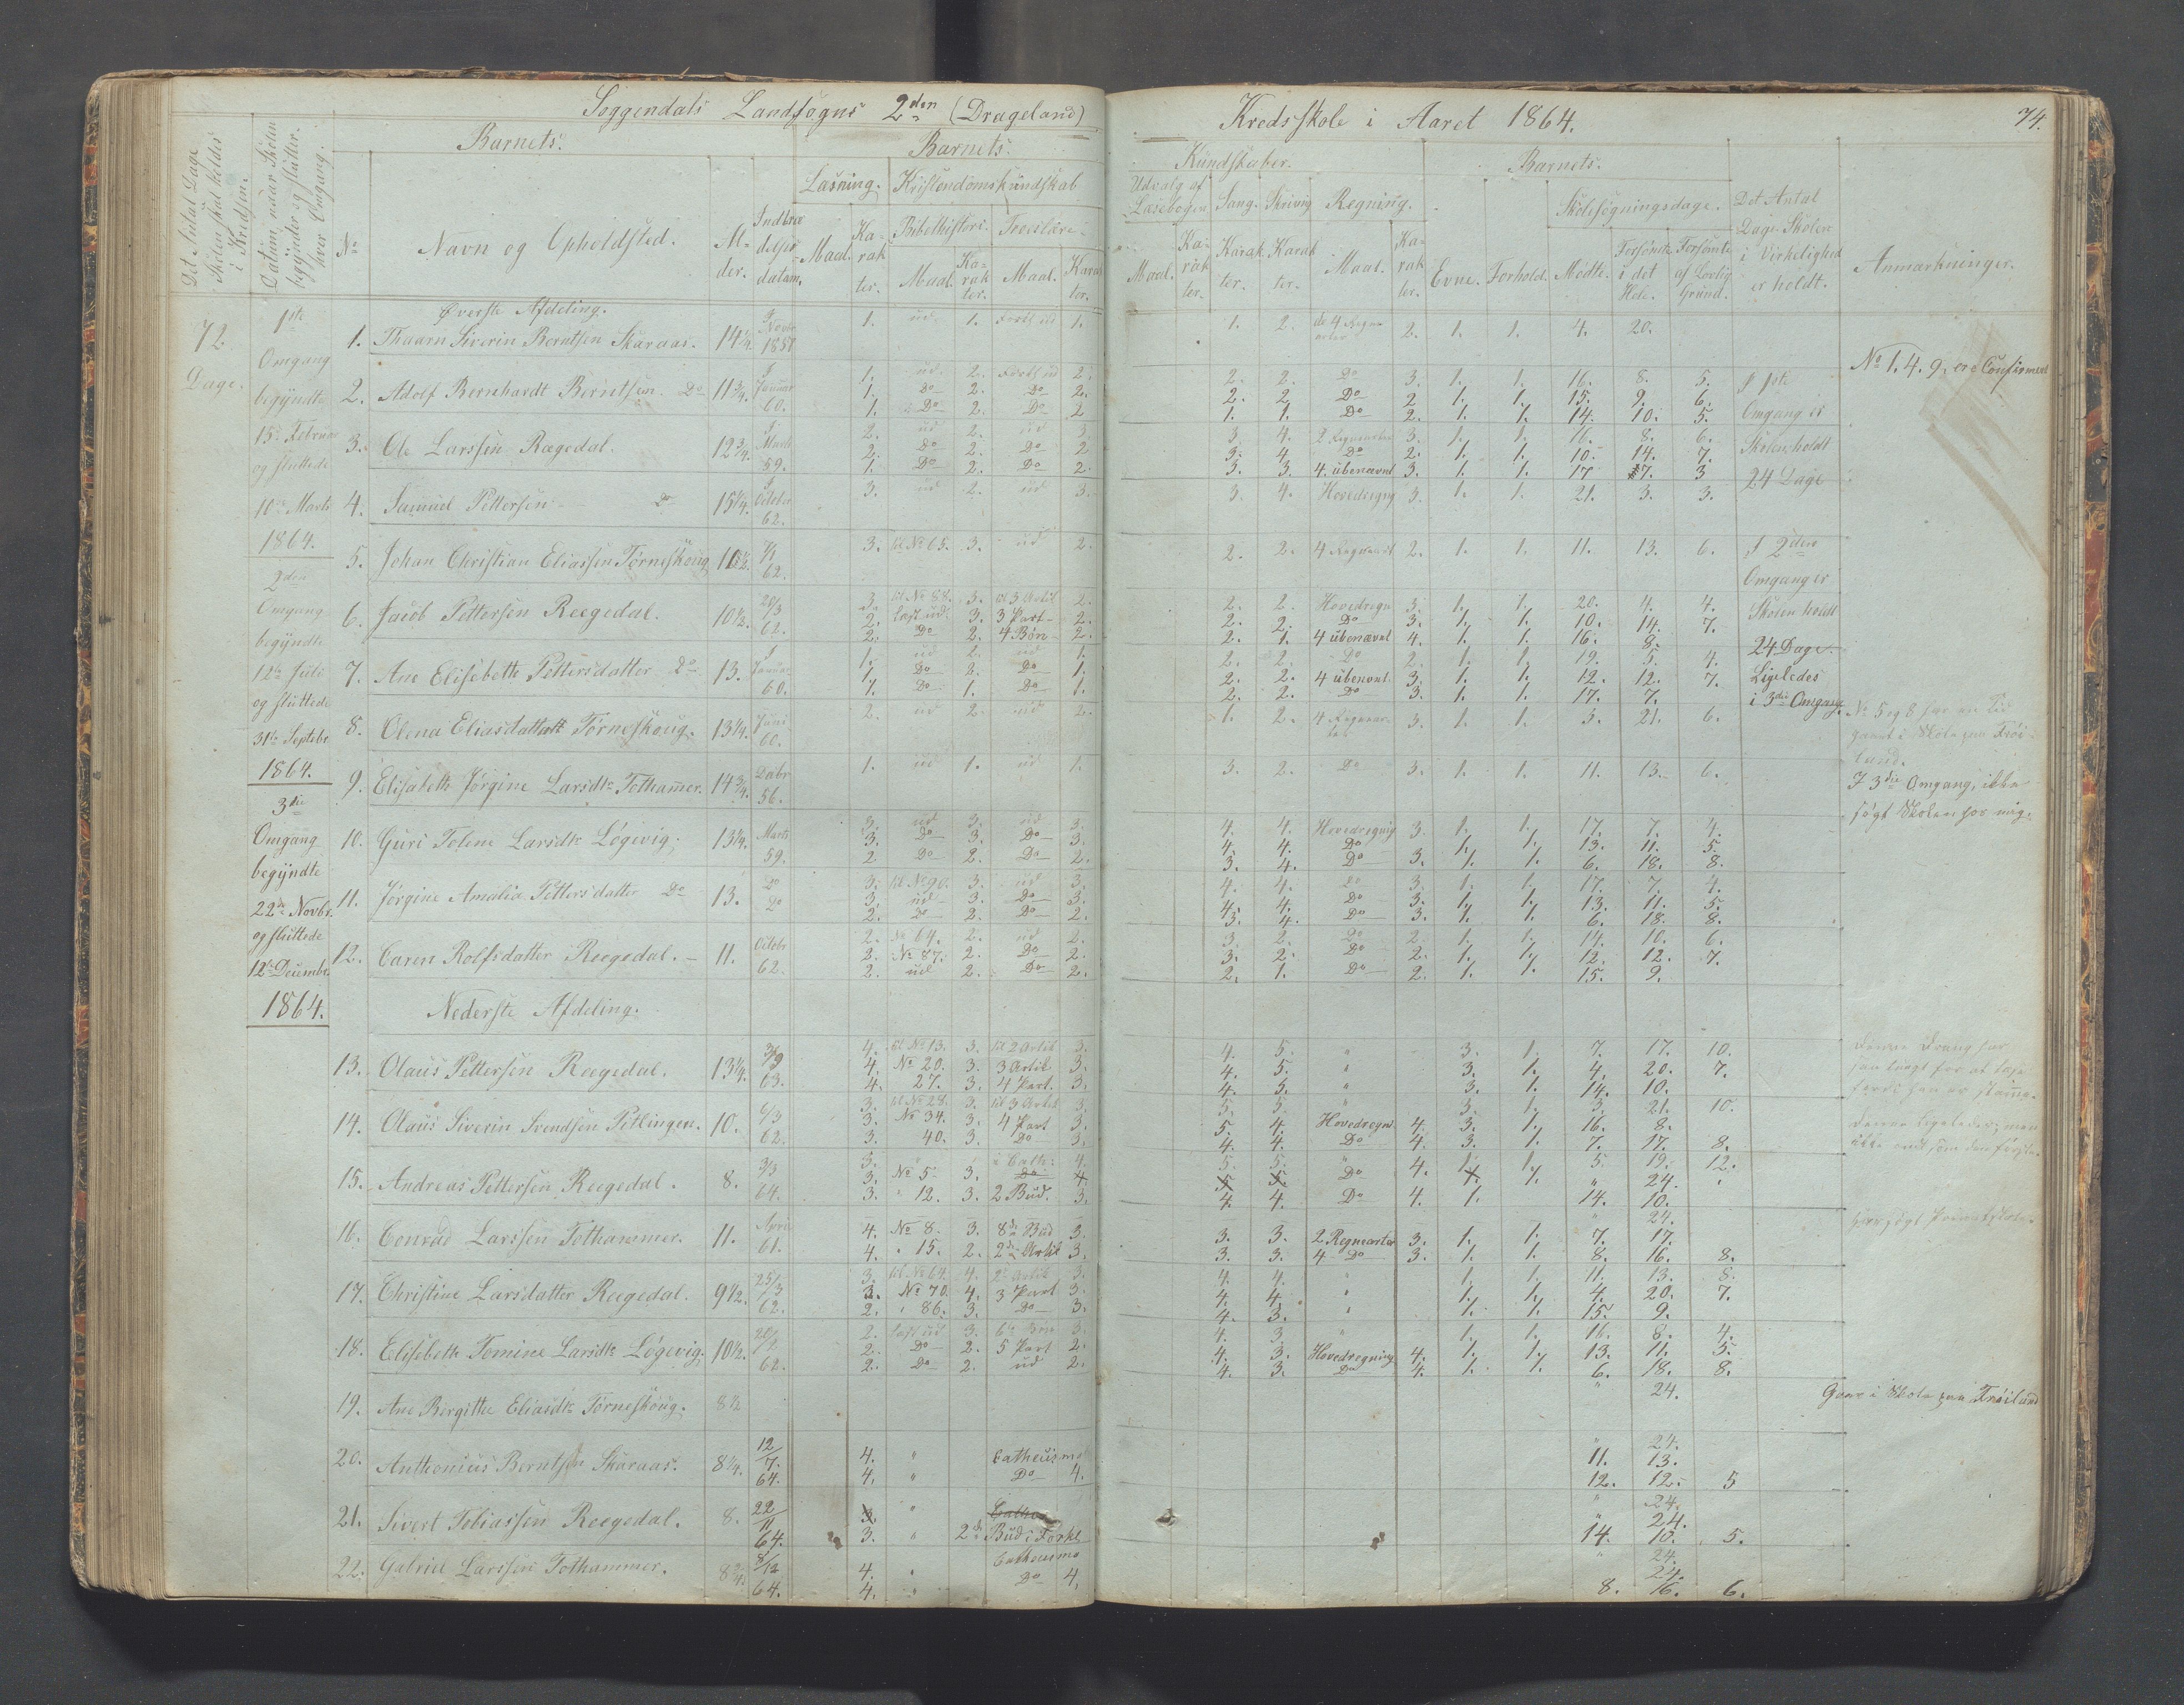 Soggendals Landsogns 2den (Drageland) Kredsskole i Aaret 1864. 74.
Det Antal Dage Skolen skal holdes i Kredsen.
Datum, naar Skolen begynder og slutter hver Omgang.
Barnets. Barnets. Kundskaber. Barnets.
No Navn og Opholdsted. Alder. Indtrædelses datum.
Læsning. Kristendomskundskab. Udvalg af Læsebogen Sang. Skrivnig Regning. Skolesøgningsdage. Det Antal Dage Skolen i Virkelighed er holdt. Anmærkninger.
Maal. Karakter. Bibelhistori. Troeslære.
Maal. Karakter. Maal. Karakter.
Maal. Karakter. Karakter. Karakter. Maal. Karakter. Evne. Forhold. Mødte. Forsømte i det Hele. Forsømte af Lovlig Grund.
72. Dage.
1ste Omgang begyndte 15de Februar og sluttede 10de Marts 1864.
2den Omgang begyndte 12te Juli og sluttede 31te Septebr 1864.
3die Omgang begyndte 22de Novbr. og sluttede 12te Decembr. 1864.
Øverste Afdeling.
1. Thaarn Siverin Berntsen Skaraas. 14 1/4 Novbr 1857 1. ud 1. 1. 1. 2. de 4 Regnearter 2. 1. 1. 4. 20.
No 1. 4. 9. ere Confirmert
2. Adolf Bernhardt Berntsen Do 11 3/4. Januar 60. 1. ud 2. 2. 2. 2. Do 3. 1. 1. 16. 8. 5.
1. Do 2. Do 2. 2. 2. Do 2 1. 1. 15. 9. 6.
1. Do 2. Do 2 1. 1. Do 2. 1. 1. 14. 10. 5.
I 1ste Omgang er Skolen holdt 24 Dage
3. Ole Larssen Rægedal. 12 3/4. Marts 59. 2. ud 2. ud 3. 3. 4. 2 Regnearter 3. 1. 1. 16. 8. 6.
2. Do 2. Do 2 3. 4 Do 2. 1. 1. 10. 14. 7.
1. Do 2. Do 2. 3. 3. 4. ubenævnt 3. 1. 1. 17 7. 3
4. Samuel Pettersen Do 15 1/4. Octobr 62. 3. ud 2. ud 3. 3. 4. Hovedregng 3. 1. 1. 21. 3. 3.
5. Johan Christian Eliassen Tørneskoug 62. 3. til No 65. 3. ud 2. 2. 2. 4 Regnearter 2. 1. 1. 11. 13. 6.
I 2den Omgang er Skolen holdt 24 Dage. Ligeledes i 3die Omgang.
6. Jacob Pettersen Reegedal. 10 1/2. 20/3 62. 3. til No 88. 3. til 3 Artik 2. 2. 2. Hovedregn 3. 1. 1. 20. 4. 4.
2. læst ud. 3. 3 Part 2. 2. 2. Do 3. 1. 1. 10. 14. 7.
2. Do 2. 4 Bøn 2. 2. 1. 4 ubenævnt 4. 1. 1. 16. 8.
7. Ane Elisebeth Pettersdatter Do 13. Januar 60. 1. ud 2. ud 1. 2. 2. Do 2. 1. 1. 19. 5. 4.
1. Do 2. Do 1. 2. 2. 4 ubenvnt. 3. 1. 1. 12. 12. 7.
1. Do 1. Do 1. 2. 2. Do 3. 1. 1. 17. 7.
8. Olena Eliasdatter Tørneskoug. 13 1/4. Juni 60. 2. ud 2. ud 2. 1. 2. 4 Regnearter 3. 1. 1. 3. 21. 6.
No 5 og 8 har en Tid gaaet i Skole paa Frøiland.
9. Elisabeth Jørgine Larsdtr Tothammer. 14 3/4. Decbr 56. 1. ud 1. ud 1. 3. 2. Do 3. 1. 1. 11. 13. 6.
I 3die Omgang, ikke søgt Skolen for mig.
10. Guri Tolene Larsdtr Løgevig. 13 1/4. Marts 59. 3. ud 3. ud 3. 4. 4. Hovedregnig 3. 1. 1. 17. 7. 4.
3. Do 3. Do 3. 4. 4. Do 1. 1. 13. 11. 5.
2. Do 2. Do 2. 3. 4. Do 3. 1. 1. 6. 18. 8.
11. Jørgine Amalia Pettersdatter Do 13. Do Do 3. til No 90. 3. ud 3. 4. 4. Do 3. 1. 1. 17. 7. 4.
3. ud 3. Do 3. 4. 4. Do 3. 1. 1. 13. 11. 5.
2. Do 2. Do 2. 3. 4. Do 3. 1. 1. 6. 18. 8.
12. Caren Rolfsdatter Reegedal. 11. Octobr 62. 2. No 64. 2. ud 2. 3. 2. Do 2. 1. 1. 14. 10. 6.
2. No 87. 2. Do 2. 3. 2. Do 2. 1. 1. 12. 12. 7.
2. ud 2. Do 2. 2. 1. Do 2. 1. 1. 15. 9.
Nederste Afdeling.
13. Olaus Pettersen Reegedal. 13 1/4. 3/9 63. 4. til No 13. 3. til 2 Artik 3. 4. 5. " 3. 1. 7. 17. 10.
4. No 20. 3. 3 Artik 3. 4. 5. " 3. 1. 4. 20. 7.
4. 27. 3. 4 Part. 3. 4. 5. " 3. 1. 14. 10.
14. Olaus Siverin Svendsen Pitlingen. 10. 6/3 62. 3. til No 28. 3. til 3 Artik 3. 5. 5. " 3. 1. 3. 21. 10.
3. No 34. 3. 4 Part 3. 5. 4. Hovedregn. 4. 3. 1. 16. 8.
3. 40. 3. Do 3. 4. 4. Do 4. 3. 1. 7. 17. 8.
15. Andreas Pettersen Reegedal. 8. 3/3 64. 3. " i Cath: 4. 5. 5. " 1. 1. 5. 19. 12.
3. No 5. 3. Do 4 5 5. Do 4. 1. 1. " 24.
3. " 12. 3. 2 Bud. 3. 4. 4. Do 4. 1. 14. 10.
16. Conrad Larssen Tothammer. 11. April 61. " 24.
4. No 8. 3. 8de Bud 3. 3. 3. 2 Regnearter 3. 1. 1. 7. 17.
4. " 15. 2. 2den Artik 3. 3. 3. 4 Do 3. 1. 1. 8. 16. 8.
17. Christine Larsdatter Reegedal. 9 1/2. 25/3 62. 3. til No 64. 4. 2 Artik 3. 4. 4. " 1. 1. 11. 13. 8.
3. No 70. 4. 3 Part 3. 4. 4. " 1. 1. 4. 20. 7.
2. " 86. 3. Do 3. 4. 3. " 1. 1. 15. 9.
18. Elisebeth Tomine Larsdtr Løgevig. 10 1/2. 62. 2. læst ud 3. 3. 4. 3. " 1. 1. 16. 8. 4.
2. Do 2. 5 Part 2. 4. 3. Hovedregning 4. 1. 1. 13. 11. 5.
2. Do 2. ud 2. 4. 3. Do 4. 1. 1. 6. 18. 8.
19. Ane Bergitte Eliasdtr Tørneskoug. 8 1/2 " 24. Gaar i Skole paa Frøiland
20. Anthonius Berntsen Skaraas. 8 1/4. 12/7. 64. " 24.
4. " Cathecismo 11. 13.
4. " Do 4. 12. 12. 5
21. Sivert Tobiassen Reegedal. 8. 22/11 64. " 24.
3. " " 24.
3. " 2det Bud i Forkl. 14. 10. 5.
22. Gabriel Larssen Tothammer. 8 3/4. 8/12 64. " 24.
4. " Cathecismo 24.
4. " Do 4. 8. 16. 6.